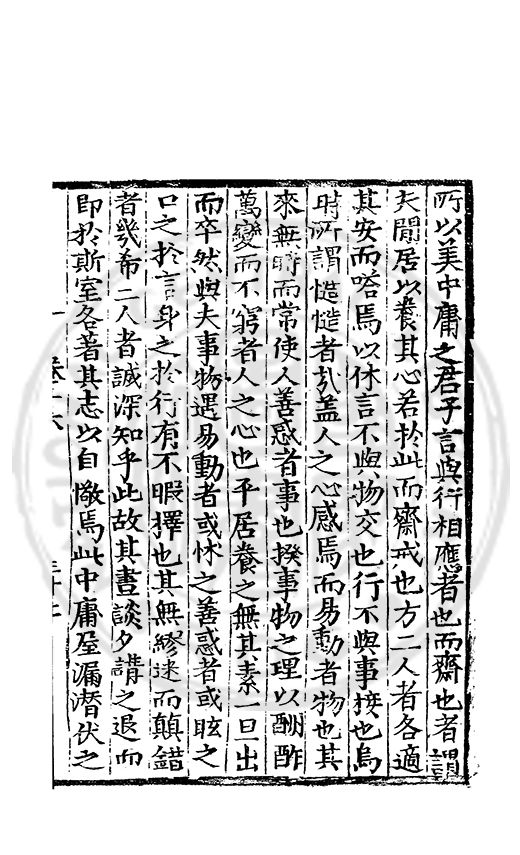 所以美中庸之君子言與行相應者也而齋也者謂
夫閒居以養其心若扵此而齋戒也方二人者各適
其安而嗒焉以休言不與物交也行不與事接也烏
時所謂慥慥者㢤盖人之心感焉而易動者物也其
來無時而常使人善惑者事也揆事物之理以酬酢
萬變而不窮者人之心也平居養之無其素一旦出
而卒然與夫事物遇易動者或怵之善惑者或眩之
口之扵言身之扵行有不暇擇也其無繆迷而顛錯
者幾希二人者誠深知乎此故其晝談夕講之退而
即扵斯室各著其志以自儆焉此中庸屋漏潛伏之